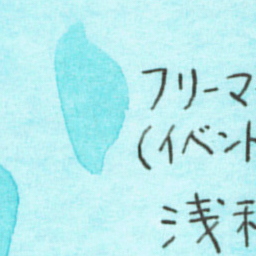 フリーマ
(イベント
浅利